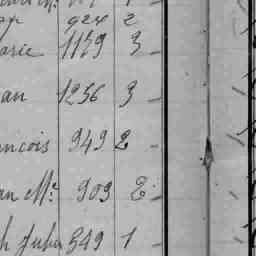 924 2
arie 1129 3
an 1236 3
ancois 949 2
an Mc 909 2
h 349 1